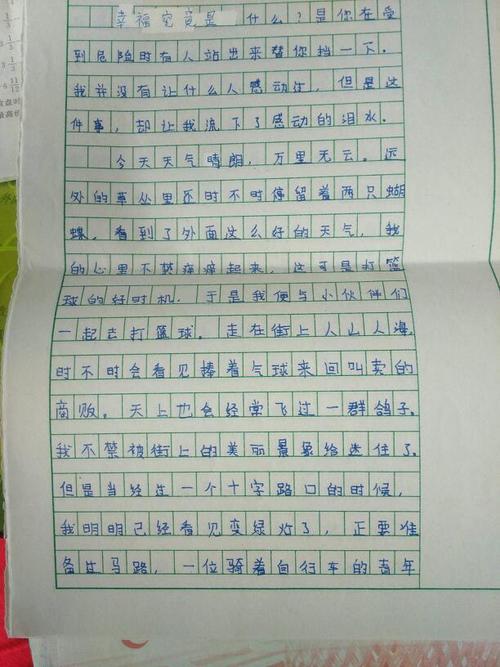 幸福究竟是什么?是你在受
到危险时有人站出来替你挡一下。
我并没有让什么人感动过,但是这
件事,却让我流下了感动的泪水。
今天天气晴朗,万里无云。远
处的草丛里还时不时停留着两只蝴
蝶。看到了外面这么好的天气,我
的心里不禁痒痒起来,这可是打篮
球的好时机,于是我便与小伙伴们
一起去打篮球。走在街上人山人海,
时不时会看见捧着气球来回叫卖的
商贩。天上也会经常飞过一群鸽子。
我不禁被街上的美丽景象给迷住了。
但是当经过一个十字路口的时候,
我明明已经看见变绿灯了,正要准
备过马路,一位骑着自行车的青年